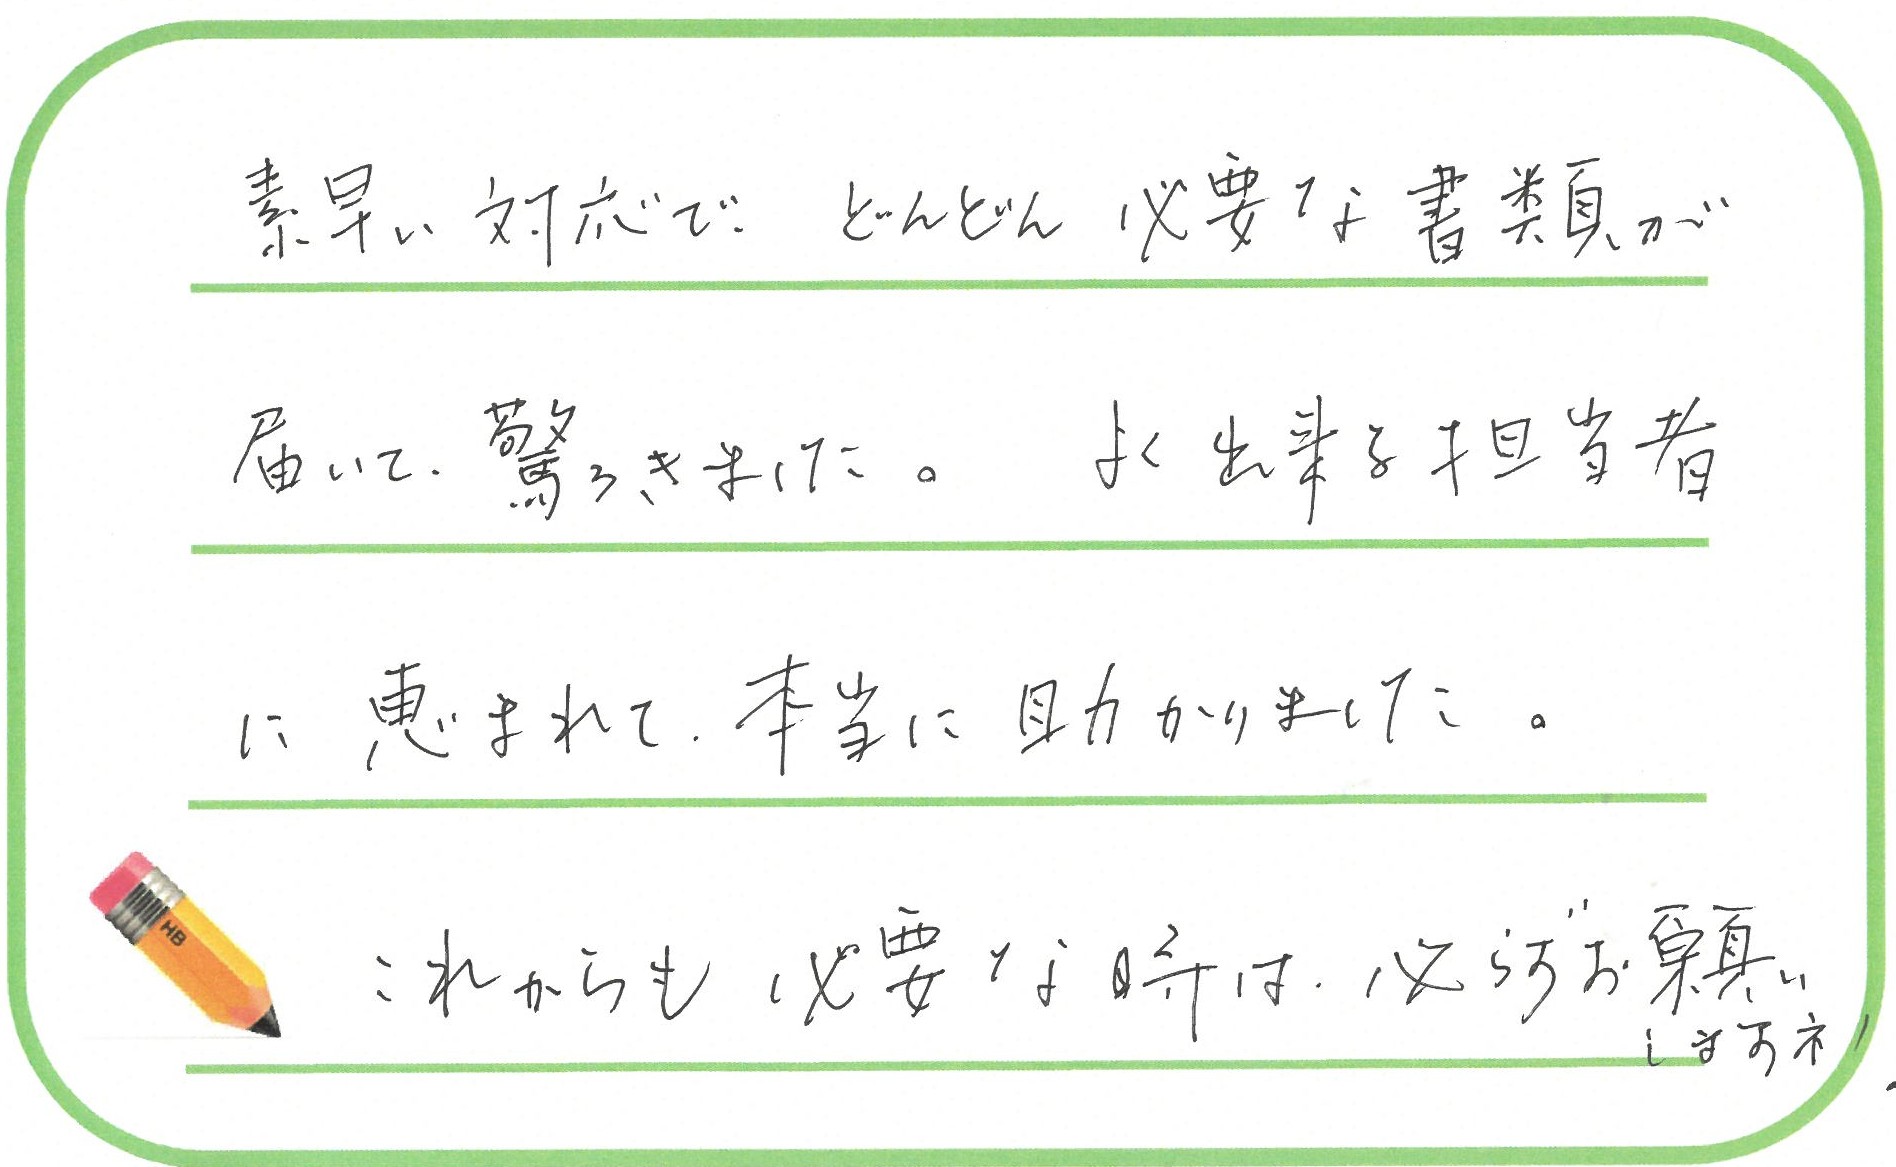 素早い対応で、どんどん必要な書類が
届いて、驚ろきました。よく出来る担当者
に恵まれて、本当に助かりました。
これからも必要な時は、必らずお願い
しますネ!
HB